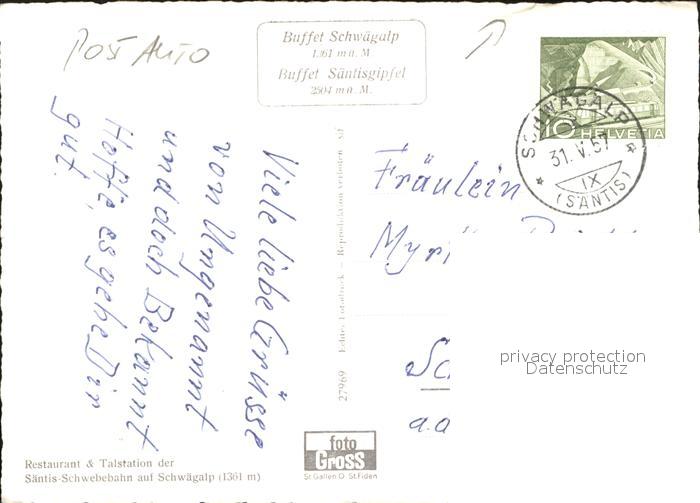 POST AUTO
Buffet Schwägalp
1361 m ü. M.
Buffet Säntisgipfel
2504 m ü. M.
10 HELVETIA
SCHWÄGALP
31. V. 57
IX
(SÄNTIS)
Viele liebe Grüsse
von Ungenannt
und doch Bekannt
Hoffe, es gehe Dir
gut.
27969
Reproduktion verboten
Fräulein
privacy protection
Datenschutz
a.a
foto
Gross
St.Gallen O. St.Fiden
Restaurant & Talstation der
Säntis-Schwebebahn auf Schwägalp (1361 m)